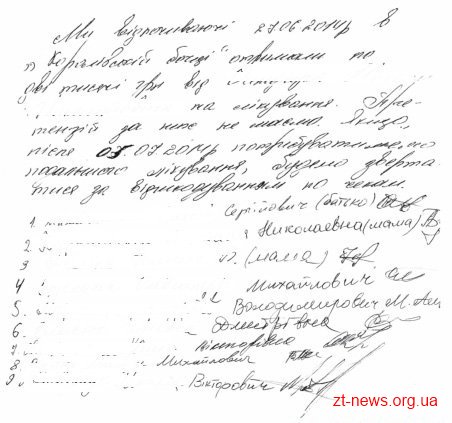 Ми відпочиваючі 27.06.2014р в
"Королівській бочці" отримали по
дві тисячі грн від
на лікування. Пре-
тензій за ниже не маємо. Якщо,
після 07.07.2014р потрібуватиме, по
подальшого лікування, будемо зверта
тися за відшкодуванням по чекам.
1. Сергійович (батько)
2. Николаевна (мама)
3. (мама)
4. Михайлович
5. Володимирович М.
6. Дмитрівна
7. Вікторівна
8. Михайлович
9. Вікторович
zt-news.org.ua